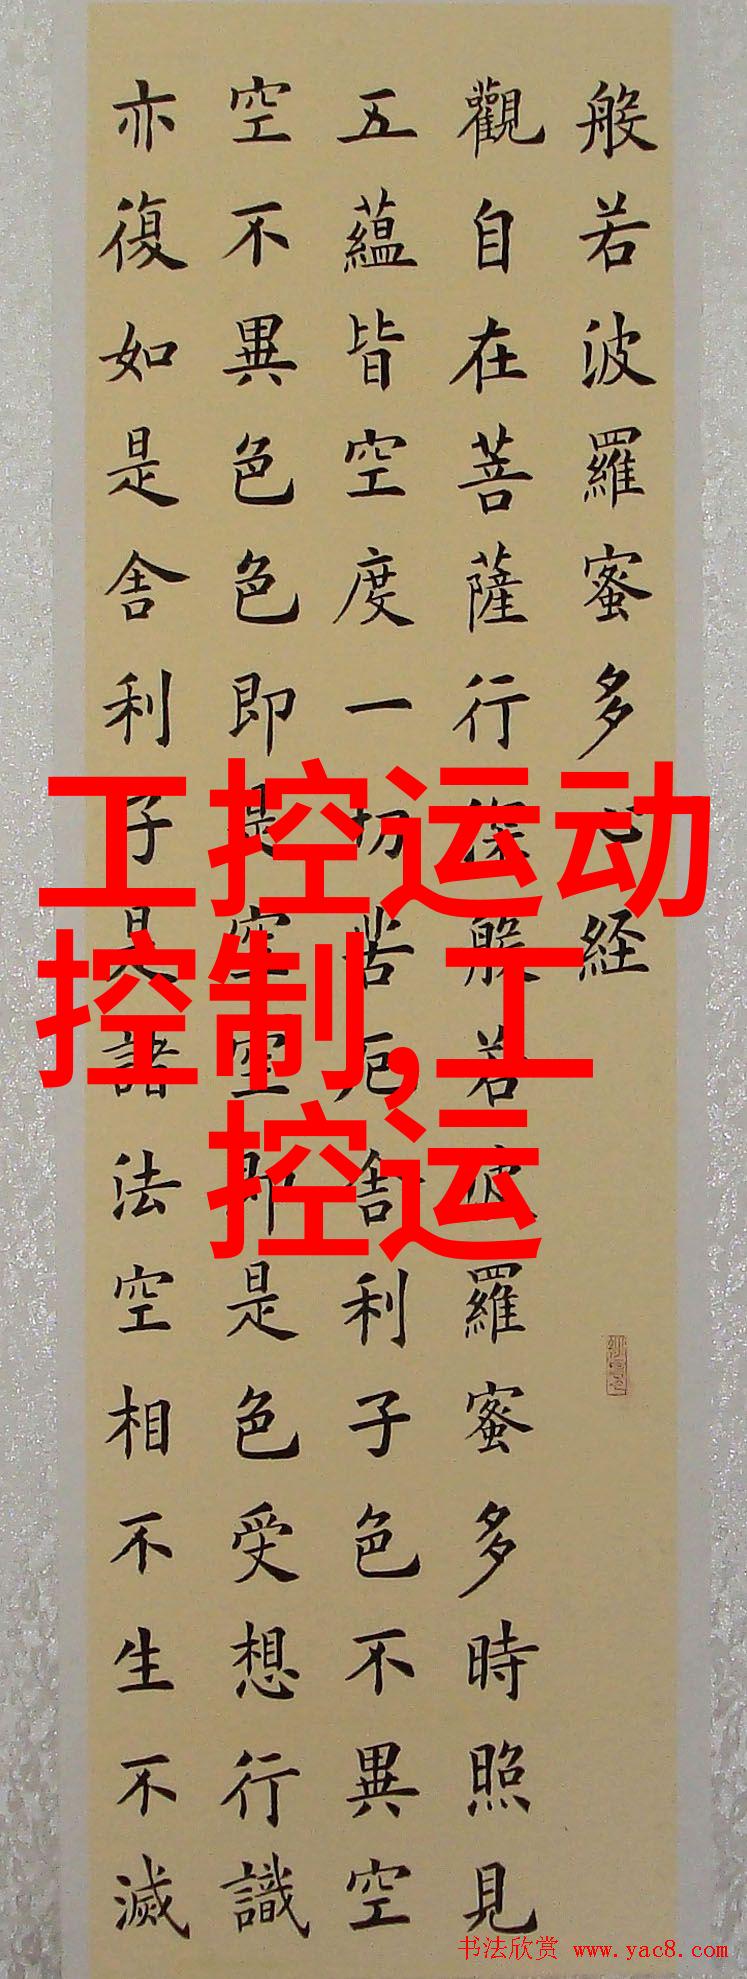 般若波羅蜜多心経
觀自在菩薩行深般若波羅蜜多時照見
五蘊皆空度一切苦厄舎利子色不異空
空不異色色即是空空即是色受想行識
亦復如是舎利子是諸法空相不生不滅
工控运动
控制,工
控运
书法欣赏 www.yac8.com